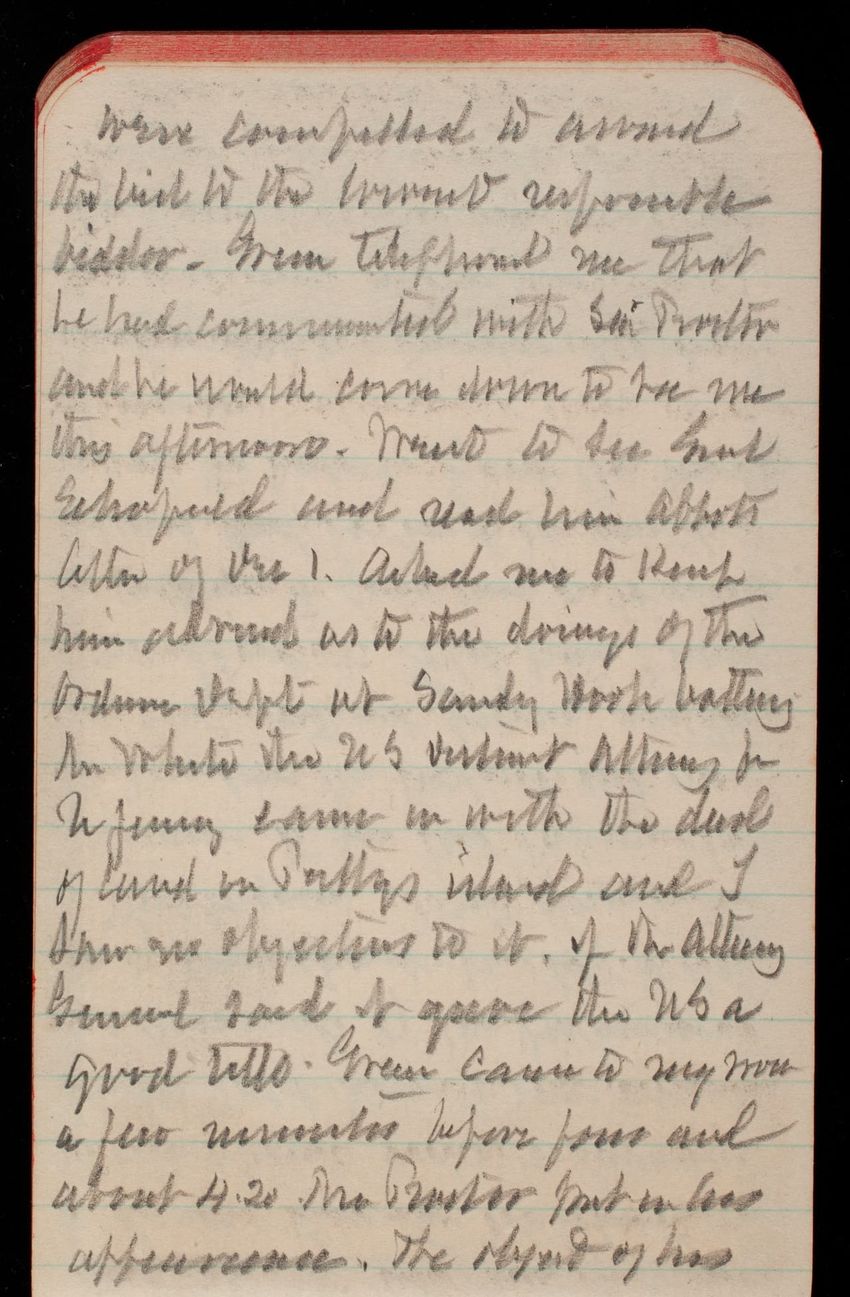 were compelled to award
the bid to the lowest responsible
bidder. Green telephoned me that
he had communicated with Sen Proctor
and he would come down to see me
this afternoon. Went to see Genl
Schofield and read him Abbots
letter of Dec 1. Asked me to Keep
him advised as to the doings of the
Ordnance Dept at Sandy Hook battery
Mr White the US District Attorney for
N Jersey came in with the deed
of land on Pettys island and I
saw no objections to it. if the Attorney
General said it gave the US a
good title. Green came to my room
a few minutes before four and
about 4.20 Mr Proctor put in his
appearance. The object of his